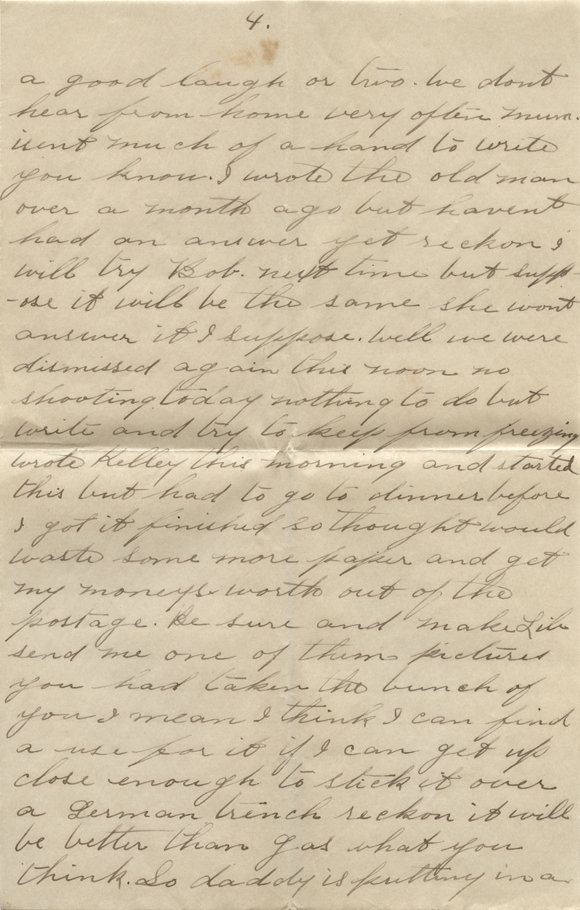 4.
a good laugh or two. We dont
hear from home very often mum.
isent much of a hand to write
you know. I wrote the old man
over a month ago but havent
had an answer yet reckon i
will try Bob. next time but supp-
-ose it will be the same she wont
answer it I suppose. Well we were
dismissed again this noon no
shooting today nothing to do but
write and try to keep from freezing
wrote Kelley this morning and started
this but had to go to dinner before
I got it finished so thought would
waste some more paper and get
my moneys worth out of the
postage. Be sure and make Lib
send me one of them pictures
you had taken the bunch of
you I mean I think I can find
a use for it if I can get up
close enough to stick it over
a German trench reckon it will
be better than gas what you
think. So daddy is putting in a